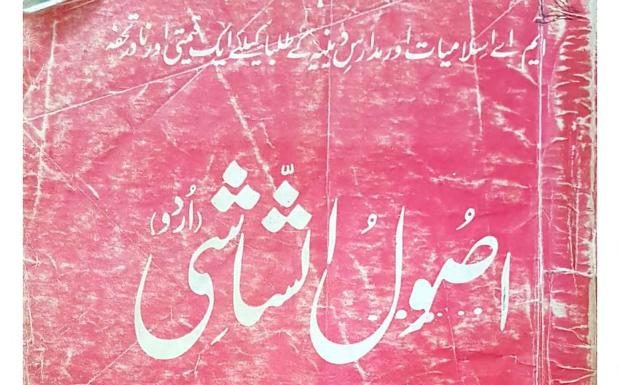 ایم اے اسلامیات اور مدارس دینیہ کے طلبا کیلئے ایک قیمتی اور نادر تحفہ
اصُولُ الشَّاشِی (اُردو)